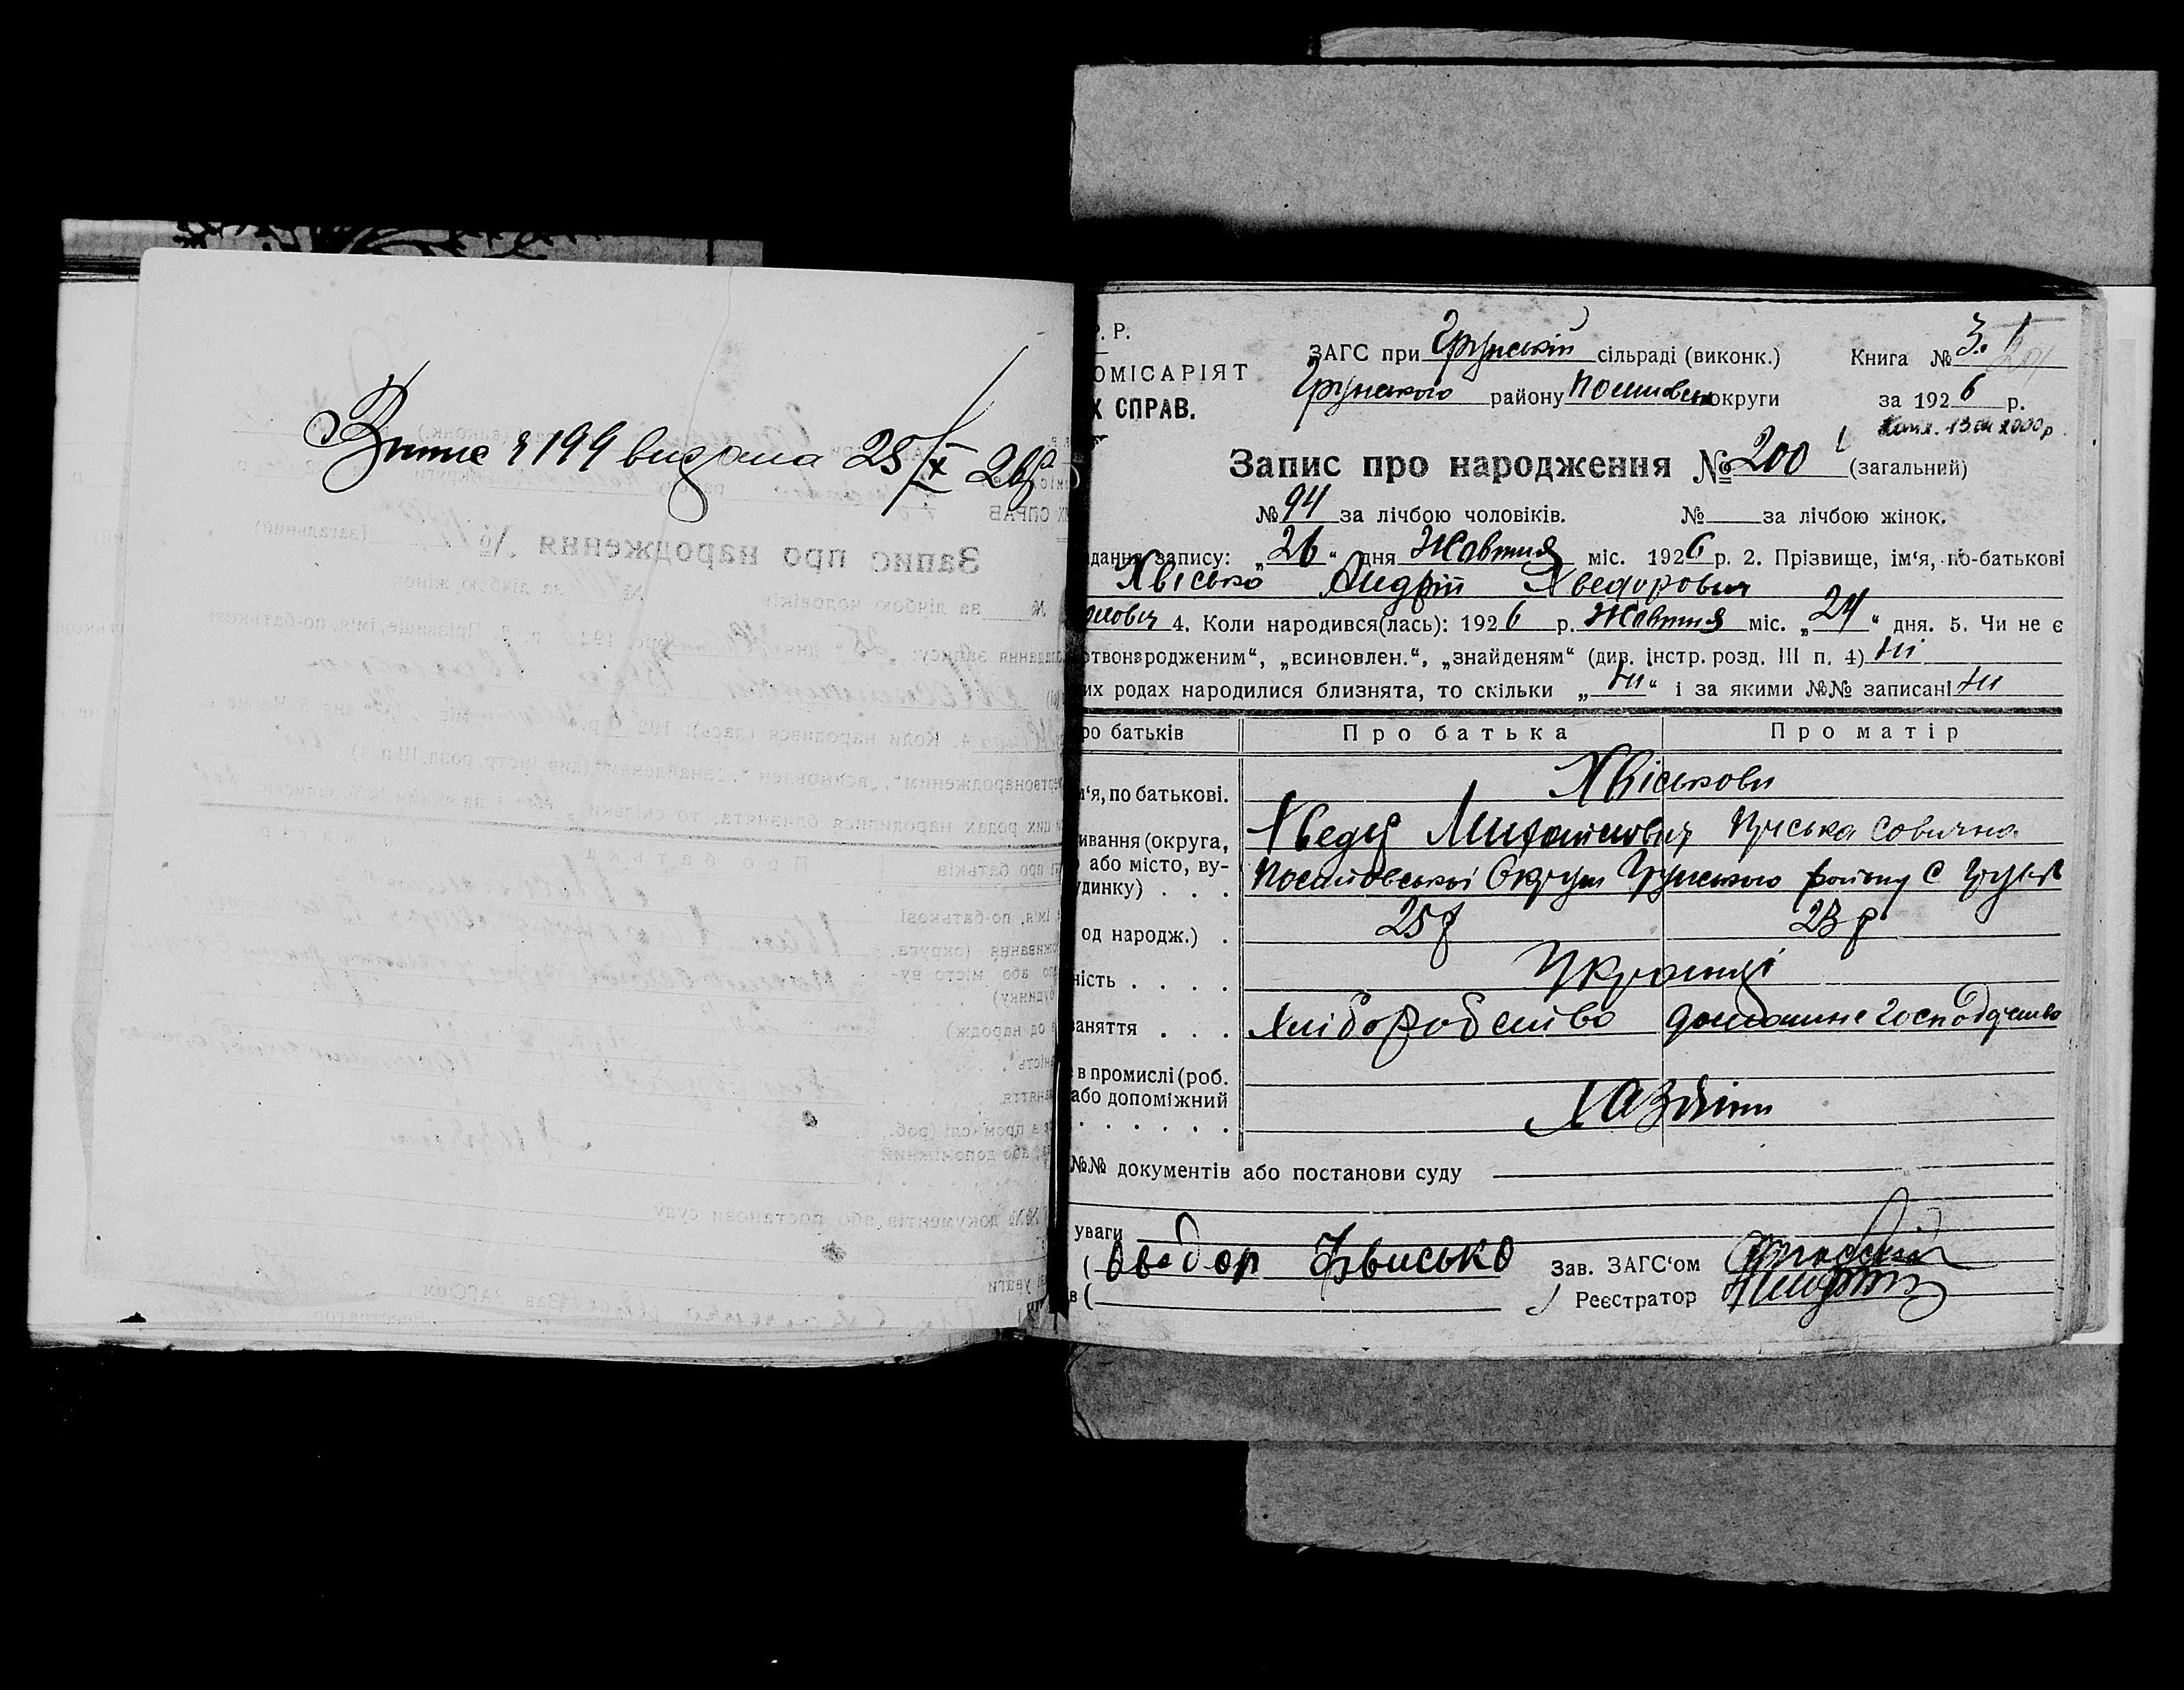 Випис № 199 видана 25/X 26 р
Р. Р.
ОМІСАРІЯТ
Х СПРАВ.
ЗАГС при Грунській сільраді (виконк.)
Грунського району округи
Книга № 3.
за 1926 р.
Запис про народження № 200 (загальний)
№ 94 за лічбою чоловіків. № за лічбою жінок.
дання запису: „26“ дня Жовтня міс. 1926 р. 2. Прізвище, ім‘я, по-батькові
Хвісько Андрій Хведорович
4. Коли народився(лась): 1926 р. Жовтня міс. „24“ дня. 5. Чи не є
ртвонародженим“, „всиновлен.“, „знайденям“ (див. інстр. розд. III п. 4) Ні
их родах народилися близнята, то скільки „Ні“ і за якими №№ записані Ні
ро батьків Про батька Про матір
м‘я, по батькові. Хвіськови
Хведір Михайлович Савична
ивання (округа,
або місто, ву-
удинку) . . . Округи Грунського району с Грунь
од народж.) . 25 р 23 р
ність . . . . Українці
заняття . . . Хліборобство домашнє господарство
в промислі (роб.
або допоміжний
. . . . . . Хазяїни
№№ документів або постанови суду
уваги
( Хведор Хвисько Зав. ЗАГС‘ом
в ( Реєстратор